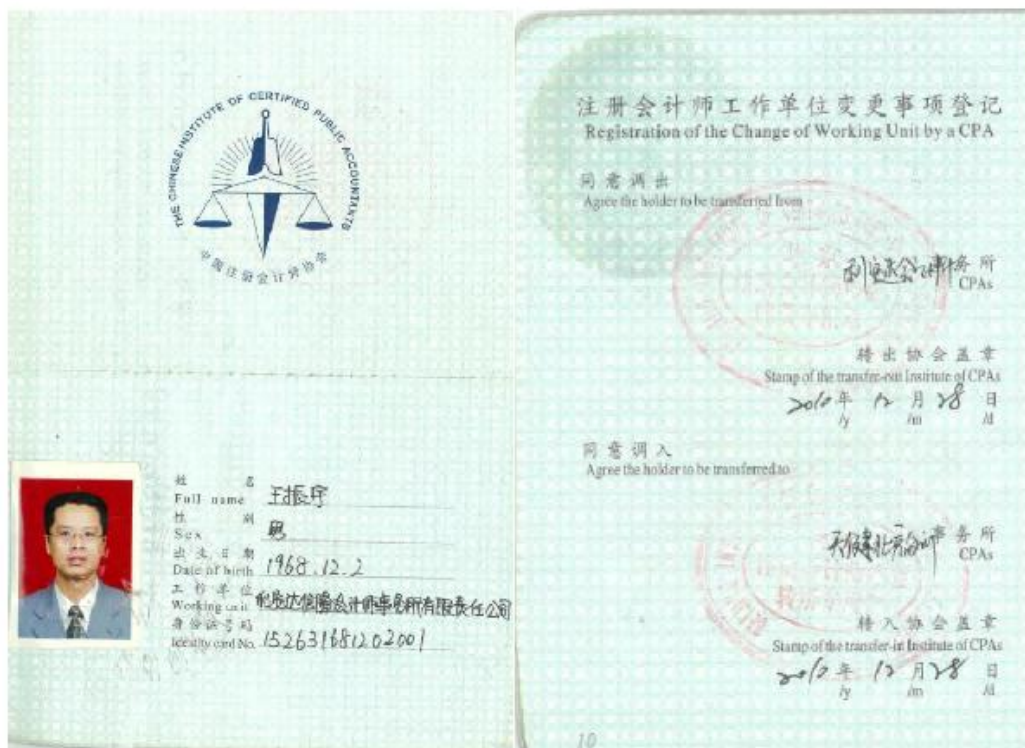 THE CHINESE INSTITUTE OF CERTIFIED PUBLIC ACCOUNTANTS
中国注册会计师协会
姓 名
Full name 王振宇
性 别
Sex 男
出生日期
Date of birth 1968.12.2
工作单位
Working unit 利安达信隆会计师事务所有限责任公司
身份证号码
Identity card No. 152631681202001
注册会计师工作单位变更事项登记
Registration of the Change of Working Unit by a CPA
同意调出
Agree the holder to be transferred from
利安达会计师事务所
CPAs
转出协会盖章
Stamp of the transfer-out Institute of CPAs
2010年 12月 28日
/y /m /d
同意调入
Agree the holder to be transferred to
天健 事务所
CPAs
转入协会盖章
Stamp of the transfer-in Institute of CPAs
2010年 12月 28日
/y /m /d
10